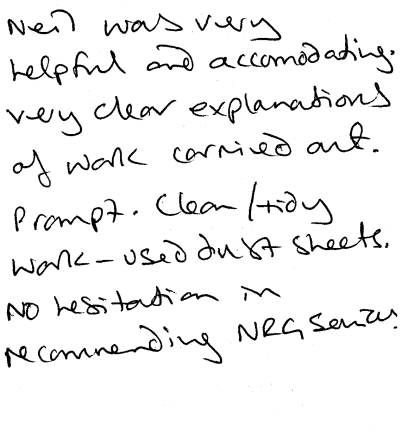 Neil was very
helpful and accomodating.
very clear explanations
of work carried out.
Prompt. Clean/tidy
work - used dust sheets.
No hesitation in
recommending NRG Services.